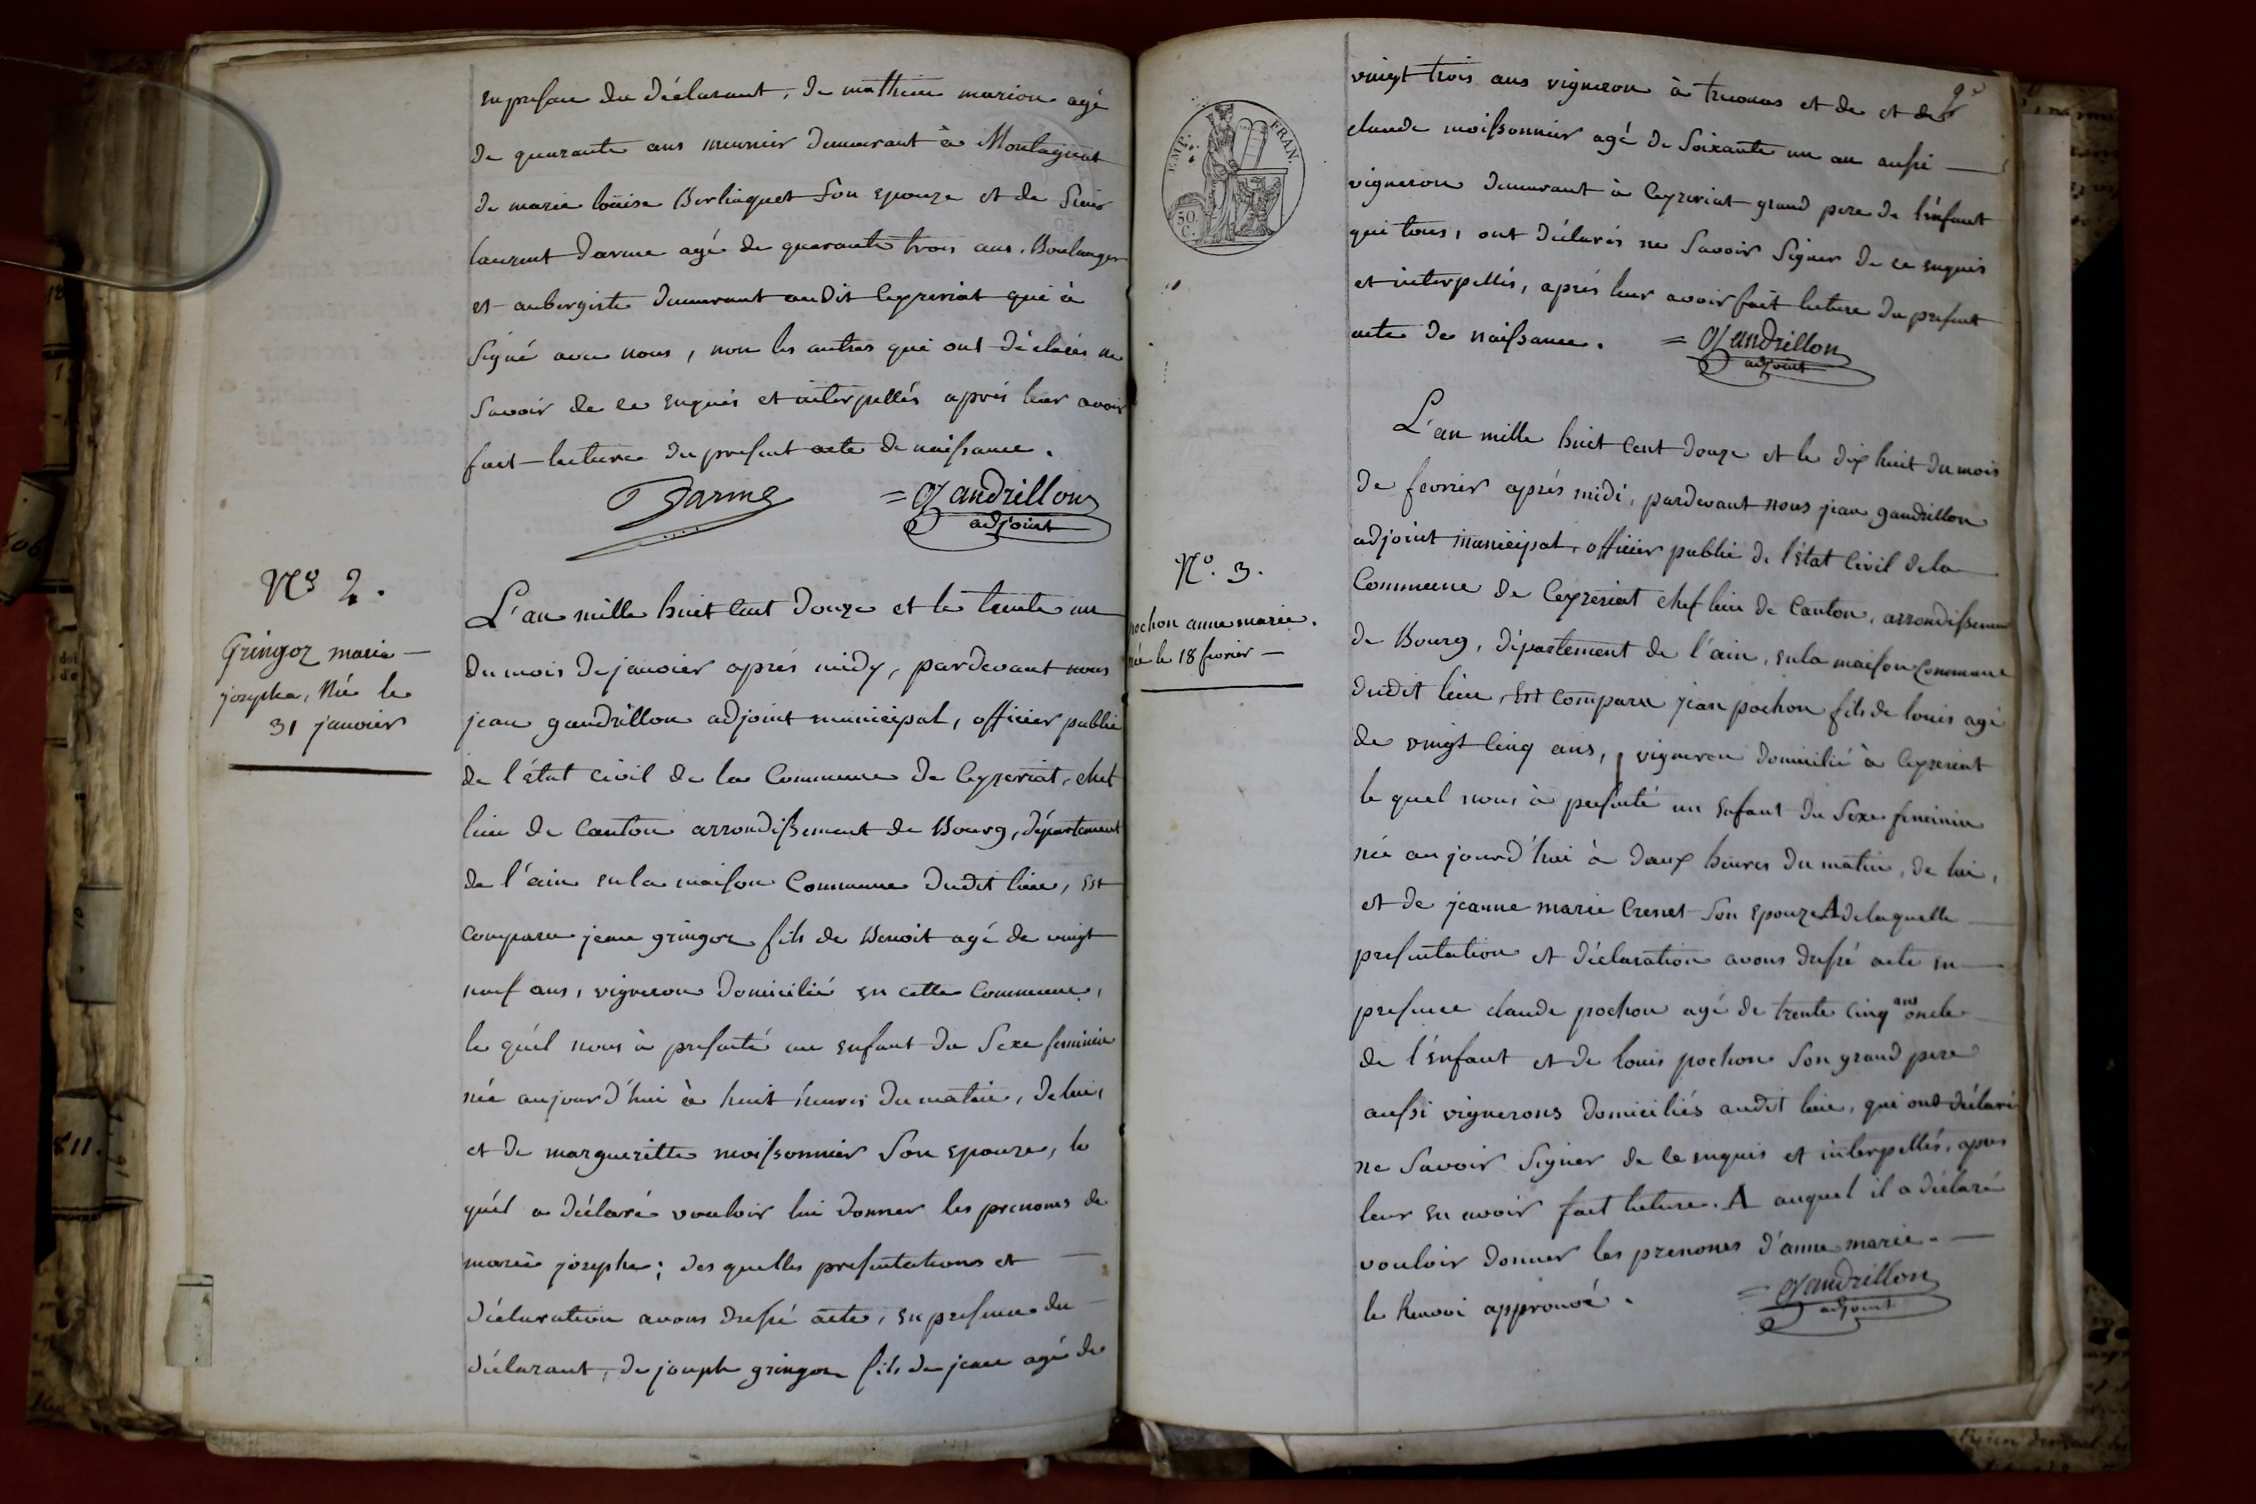 en presence du déclarant, de mathieu marion agé
de quarante ans meunier demeurant à Montagnat
de marie loüise Berliaquet son epouze et de sieur
laurent darme agé de quarante trois ans. Boulanger
et aubergiste demeurant audit Ceyzeriat qui à
signé avec nous, non les autres qui ont déclarés ne
savoir de ce enquis et interpellés après leur avoir
fait lecture du present acte de naissance.
Darme = Gandrillon
adjoint
Nº 2.
Gringoz marie
josephe, Née le
31 janvier
L'an mille huit cent douze et le trente un
du mois de janvier aprés midy, pardevant nous
jean gandrillon adjoint municipal, officier public
de l'état civil de la Commune de Ceyzeriat, chef
lieu de Canton arrondissement de Bourg, département
de l'ain en la maison Commune dudit lieu, est
comparu jean gringoz fils de Benoit agé de vingt
neuf ans, vigneron domicilié en cette Commune,
le quél nous à presenté un enfant du sexe feminin
née aujourd'hui à huit heures du matin, de lui,
et de margueritte moissonnier son epouze, le
quél a déclaré vouloir lui donner les prenoms de
marie josephe; des quelles presentations et
déclaration avons dressé acte, en presence du
déclarant, de joseph gringoz fils de jean agé de
EMP. FRAN.
50.
C.
vingt trois ans vigneron à treconas et de et de
claude moissonnier agé de soixante un an aussi
vigneron demeurant à Ceyzeriat grand pere de l'enfant
qui tous, ont déclarés ne savoir signer de ce enquis
et interpellés, aprés leur avoir fait lecture du present
acte de naissance. = Gandrillon
adjoint
Nº. 3.
pochon anne marie.
née le 18 fevrier
L'an mille huit cent douze et le dix huit du mois
de fevrier aprés midi, pardevant nous jean gandrillon
adjoint municipal, officier public de l'état civil de la
Commune de Ceyzeriat chef lieu de Canton, arrondissement
de Bourg, département de l'ain, en la maison Commune
dudit lieu, Est comparu jean pochon fils de louis agé
de vingt cinq ans, vigneron domicilié à Ceyzeriat
le quel nous à presenté un enfant du sexe feminin
née aujourd'hui à deux heures du matin, de lui,
et de jeanne marie Cresnet son epouze A de laquelle
presentation et déclaration avons dressé acte en
presence claude pochon agé de trente cinq ans oncle
de l'enfant et de louis pochon son grand pere
aussi vignerons domiciliés audit lieu, qui ont déclaré
ne savoir signer de ce enquis et interpellés, apres
leur en avoir fait lecture. A auquel il a déclaré
vouloir donner les prenoms d'anne marie.
le Renvoi approuvé. = Gandrillon
adjoint